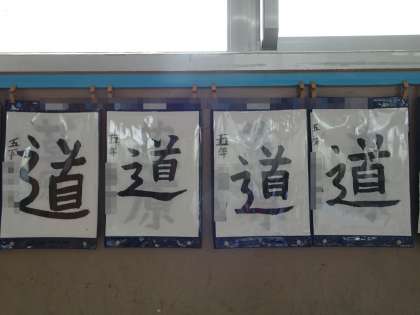 道
五年
道
五年
道
五年
道
五年